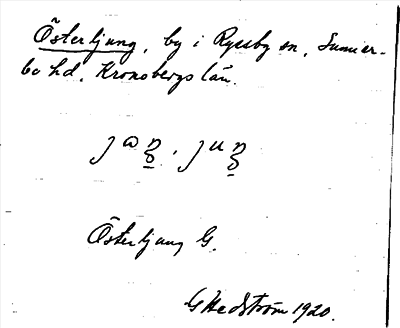 Österljung, by i Ryssby sn, Sunner-
bo hd, Kronobergs län.
Österljung G.
G Hedström 1920.